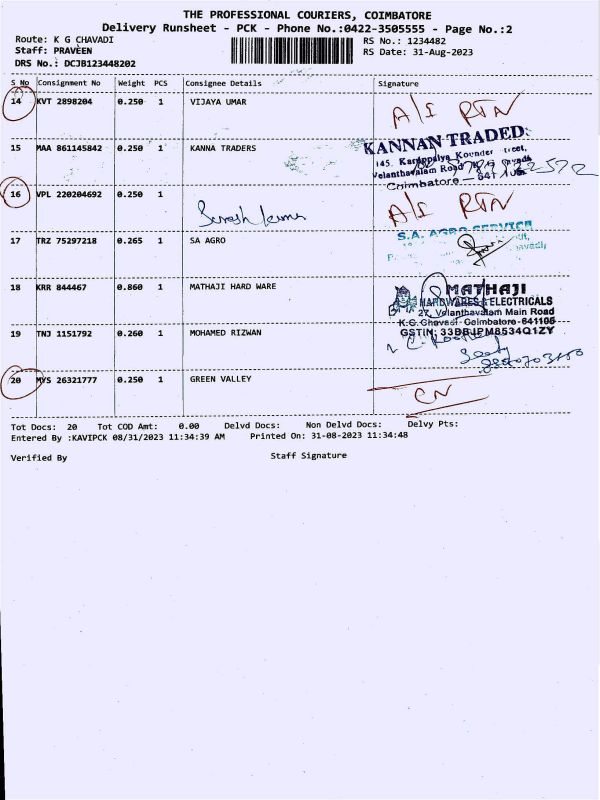 THE PROFESSIONAL COURIERS, COIMBATORE
Delivery Runsheet - PCK - Phone No.:0422-3505555 - Page No.:2
Route: K G CHAVADI
RS No.: 1234482
Staff: PRAVEEN
RS Date: 31-Aug-2023
DRS No.: DCJB123448202
S No Consignment No Weight PCS Consignee Details Signature
14 KVT 2898204 0.250 1 VIJAYA UMAR A/S RTN
15 MAA 861145842 0.250 1 KANNA TRADERS
KANNAN TRADED
Coimbatore
16 VPL 220204692 0.250 1 Suresh kumar A/S RTN
17 TRZ 75297218 0.265 1 SA AGRO
S.A. AGRO SERVICE
18 KRR 844467 0.860 1 MATHAJI HARD WARE
MATHAJI
HARDWARES & ELECTRICALS
27, Velanthavalam Main Road
K.G. Chavadi Coimbatore-641105
GSTIN: 33BBJPM8534Q1ZY
19 TNJ 1151792 0.260 1 MOHAMED RIZWAN
20 MYS 26321777 0.250 1 GREEN VALLEY CN
Tot Docs: 20 Tot COD Amt: 0.00 Delvd Docs: Non Delvd Docs: Delvy Pts:
Entered By :KAVIPCK 08/31/2023 11:34:39 AM Printed On: 31-08-2023 11:34:48
Verified By Staff Signature